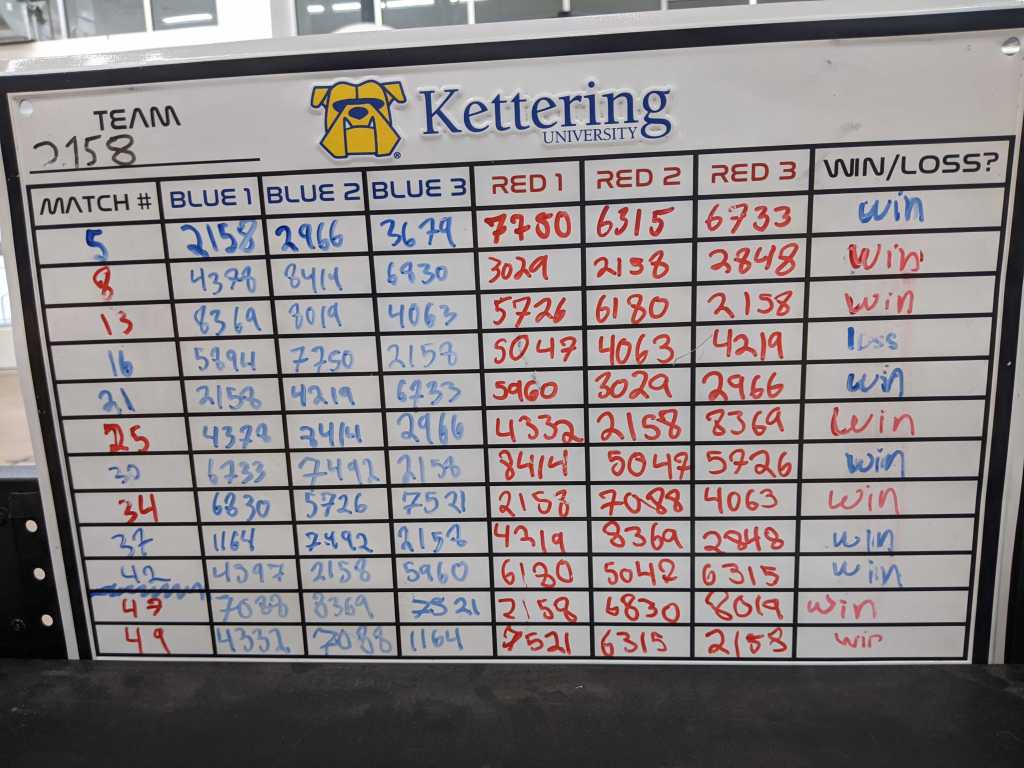 TEAM
2158
Kettering
UNIVERSITY
MATCH # BLUE 1 BLUE 2 BLUE 3 RED 1 RED 2 RED 3 WIN/LOSS?
5 2158 2966 3679 7750 6315 6733 win
8 4378 8414 6830 3029 2158 2848 win
13 8369 8019 4063 5726 6180 2158 win
16 5894 7750 2158 5047 4063 4219 loss
21 2158 4219 6733 5960 3029 2966 win
25 4378 8414 2966 4332 2158 8369 win
30 6733 7492 2158 8414 5047 5726 win
34 6830 5726 7521 2158 7088 4063 win
37 1164 7492 2158 4219 8369 2848 win
42 4597 2158 5960 6180 5042 6315 win
47 7088 8369 7521 2158 6830 8019 win
49 4332 7088 1164 7521 6315 2158 win